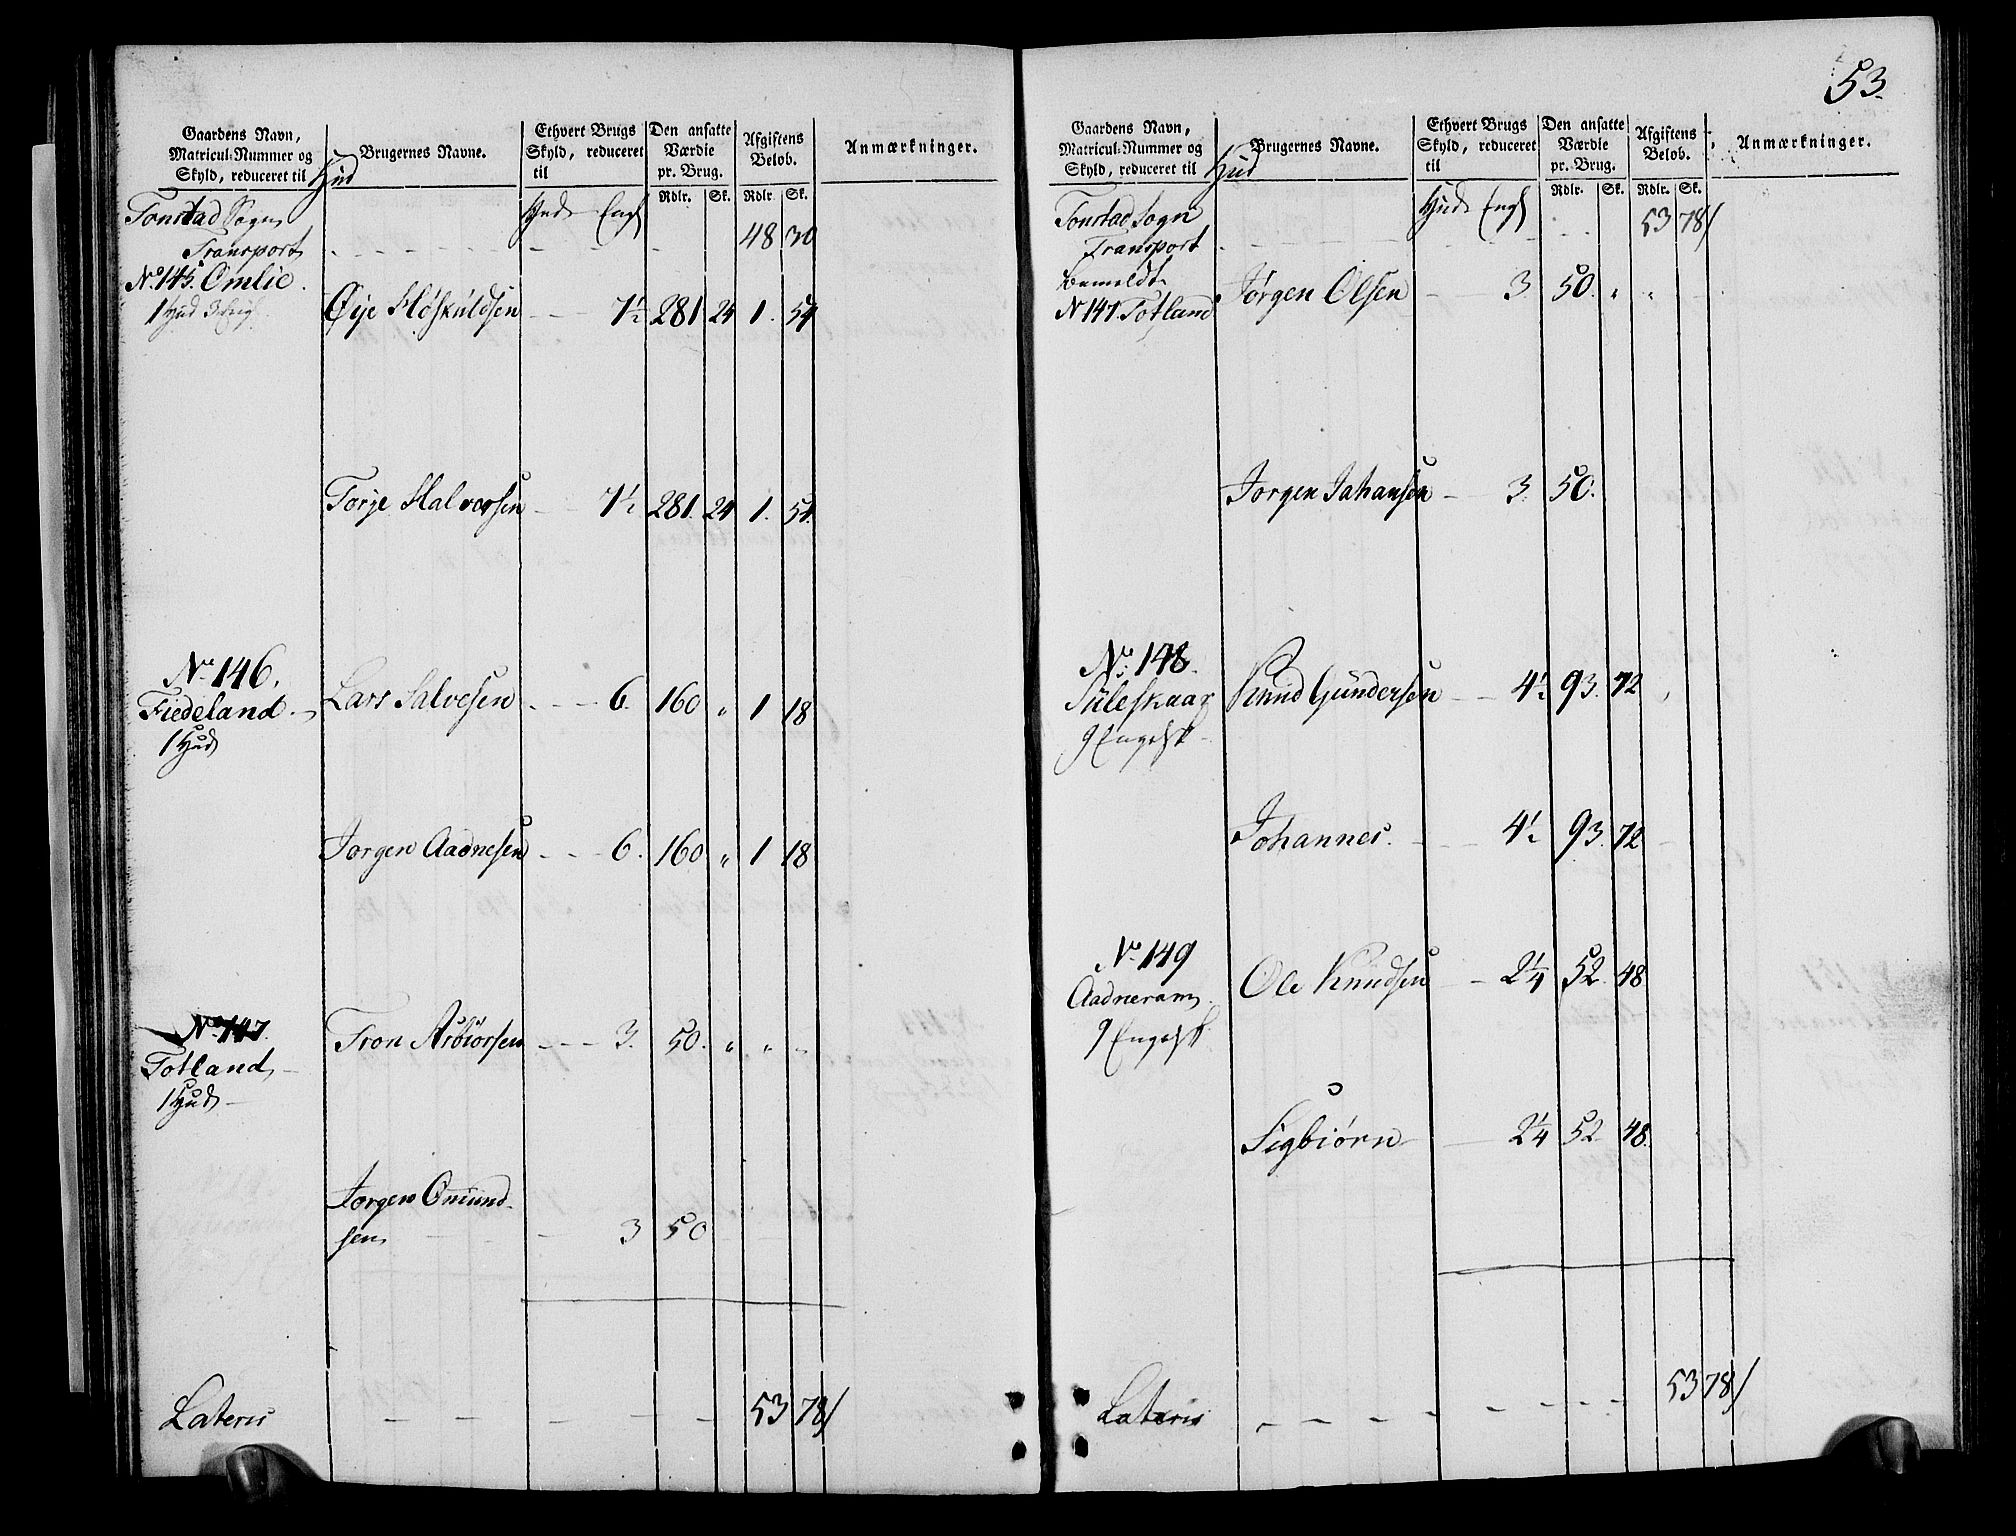 Gaardens Navn,
Matricul-Nummer og
Skyld, reduceret til Hud
Brugernes Navne.
Ethvert Brugs
Skyld, reduceret
til
Den ansatte
Værdie
pr. Brug.
Afgiftens
Beløb.
Anmærkninger.
Rdlr. Sk. Rdlr. Sk.
Tonstad Sogn Hud Engl
Transport - - - - - 48 30
No 145. Omlie
1 Hud 3 Eng. Øye Höskuldsen - - 7½ 281 24 1. 54
Torje Halvorsen - - 7½ 281. 24 1. 54.
No 146.
Fiedeland Lars Salvesen - - - 6. 160 „ 1 18
1 Hud
Jorgen Aadnesen - - - 6. 160 „ 1 18
No 147.
Totland Tron Asbiorsen - - - 3. 50. „ „ -
1 Hud
Jorgen Omund-
sen - - 3 50
Lateris - - - - - 53 78/
53.
Gaardens Navn,
Matricul-Nummer og
Skyld, reduceret til Hud
Brugernes Navne.
Ethvert Brugs
Skyld, reduceret
til
Den ansatte
Værdie
pr. Brug.
Afgiftens
Beløb.
Anmærkninger.
Rdlr. Sk. Rdlr. Sk.
Tonstad Sogn Hud Engl 53 78/
Transport
bemeldte
N 147. Totland Jörgen Olsen - - 3 50. „ „
Jorgen Jahansen - 3. 50.
No: 148.
Suleskaar Knud Gundersen - - 4½ 93. 72
9 Engelsk
Johannes. - - 4½ 93. 72
No 149
Aadneram Ole Knudsen - 2¼ 52. 48
9 Engelsk
Sigbiørn - 2¼ 52 48.
Lateris - - - - - - - 53 78/